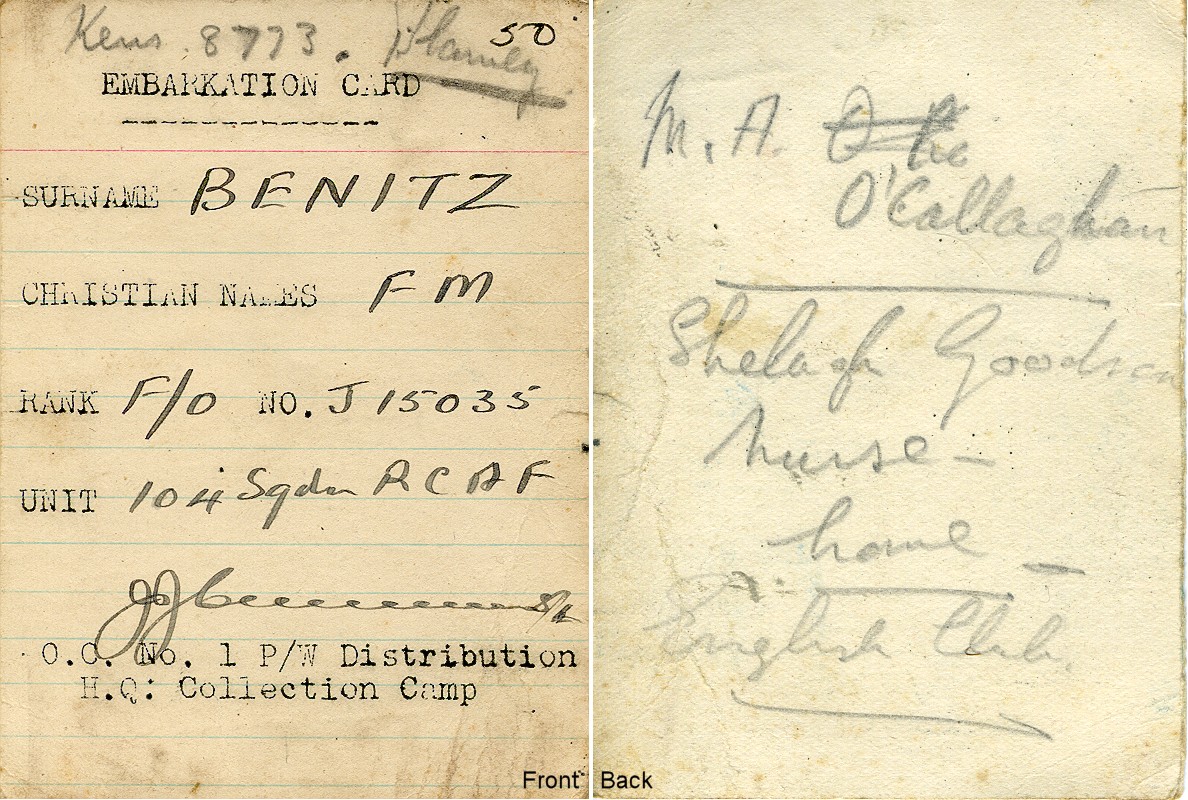 Kens. 8773. 50
EMBARKATION CARD
SURNAME BENITZ
CHRISTIAN NAMES F M
RANK F/O NO. J 15035
UNIT 104 Sqdn RCAF
O.C. No. 1 P/W Distribution
H.Q: Collection Camp
Front
M. A.
O'Callaghan
Shelagh Goodson
nurse -
home -
English Club.
Back